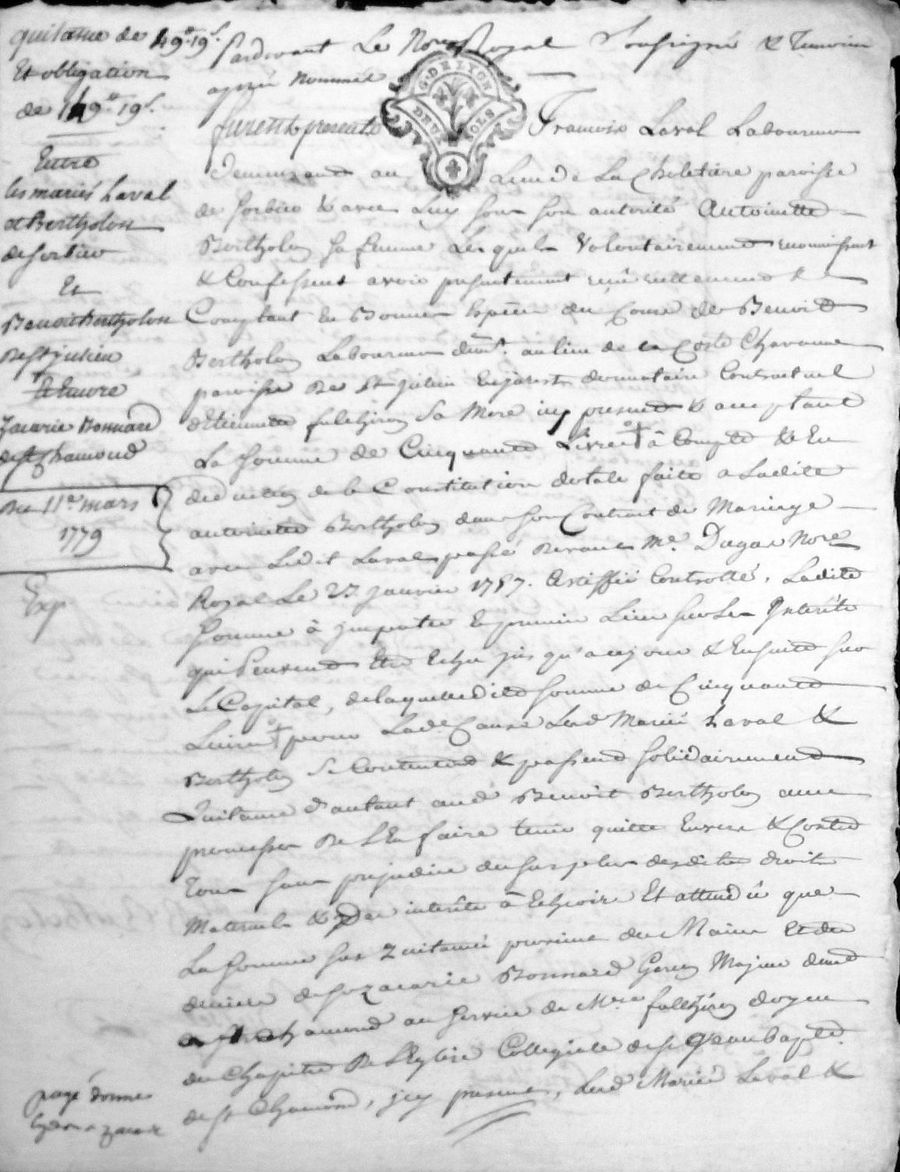 quitance de 49# 19s
Et obligation
de 149# 19s
Entre
les mariés Laval
et Bertholon
de Sorbier
Et
Benoit Bertholon
de St julien
Et Encore
Zacarie Bonnard
de St Chamond
Du 11e mars
1779
Exp
Pardevant Le Nore Royal Soussigné & Temoins
après nommés
G. DE LYON
DEUX SOLS
furent presents François Laval Laboureur
demeurant au Lieu de La Choletiere paroisse
de Sorbier & avec Luy sous son autorité Antoinette
Bertholon sa femme Lesquels Volontairement reconnoissent
& Confessent avoir presentement reçû reellement &
Comptant En Bonnes Espèces du Cours de Benoit
Bertholon Laboureur demt. au lieu de la Coste Chavanne
paroisse de St julien En jarest donnataire Contractuel
d'Etiennette fulchiron Sa Mere icy present & acceptant
La Somme de Cinquante Livres à Compte & En
deduction de la Constitution dotale faite a Ladite
antoinette Bertholon dans son Contrat de Mariage
avec Ledit Laval passé devant Me. Dugas Nore
Royal Le 27 janvier 1757. Certiffié Controllé, Ladite
Somme à jmputer En premier Lieu sur Les Interêts
qui Peuvent Etre Echu jusqu'a ce jour & Ensuite sur
Le Capital, de laquelle dite Somme de Cinquante
Livres pour Lade. Cause Lesd Mariés Laval &
Bertholon Se Contentent & passent solidairement
Quitance d'autant aud Benoit Bertholon avec
promesse de L'En faire tenir quitte Envers & Contre
Tous sans prejudice du surplus desdits droits
Maternels & Des interêts à Echeoir Et attendû que
La Somme sus Quitancée provient des Mains Et des
deniers de Sr Zacarie Bonnard Garçon Majeur demt
a St Chamond au Service de Mre fulchiron doyen
du Chapitre de L'Eglise Collegiale de St Jean baptte.
de St Chamond, icy present, Lesd Mariés Laval &
payé donné